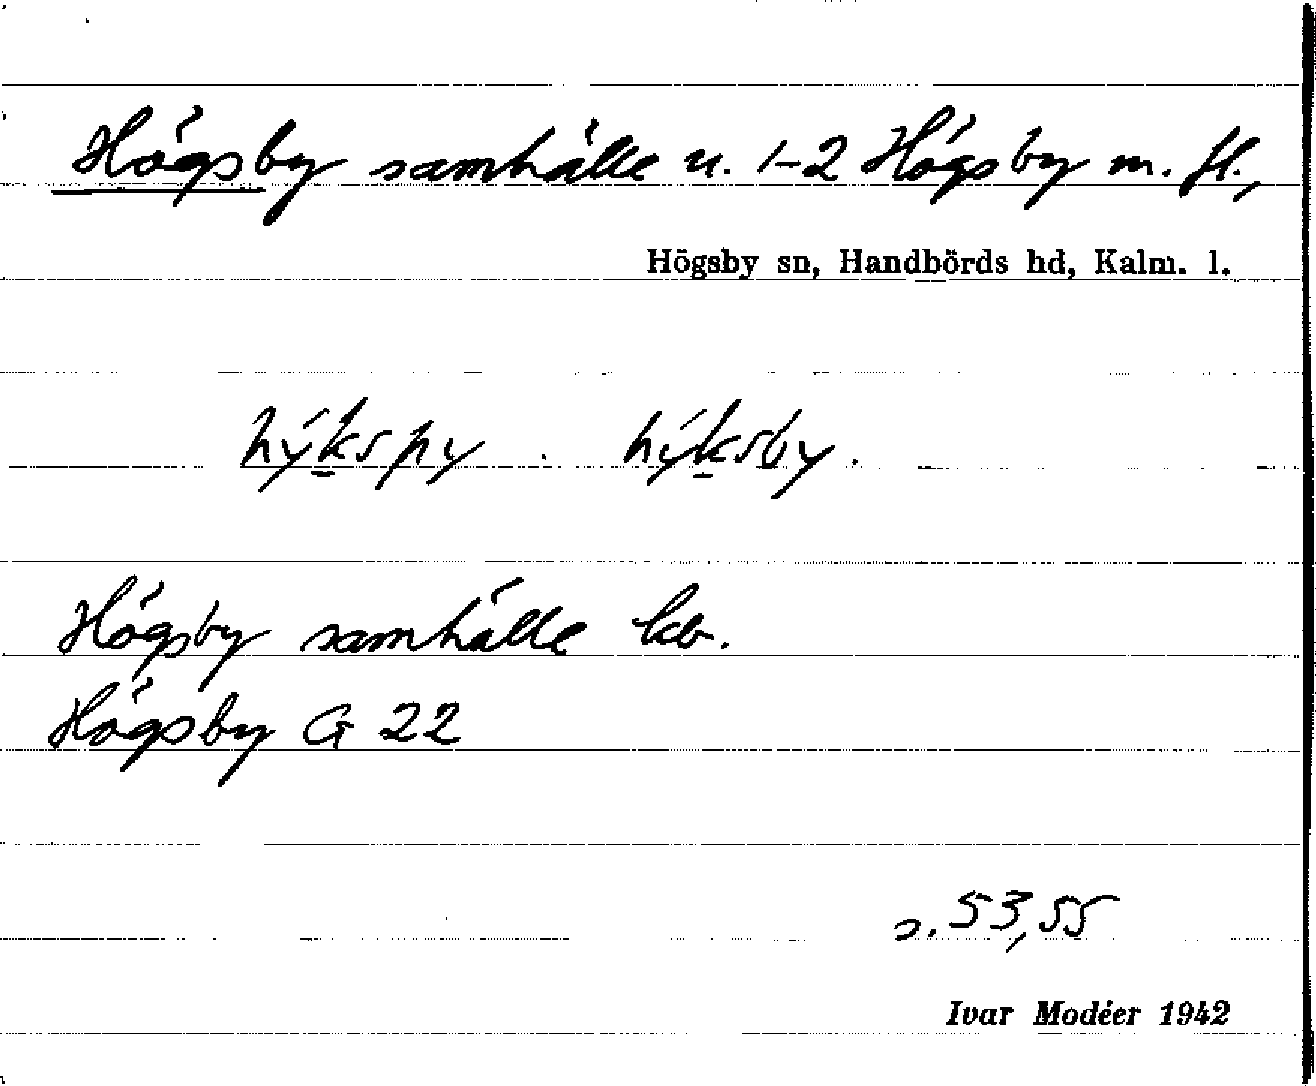 Högsby samhälle u. 1-2 Högsby m. fl.,
Högsby sn, Handbörds hd, Kalm. l.
hýkspy . hýksby.
Högsby samhälle kb.
Högsby G 22
s. 53, 55
Ivar Modéer 1942